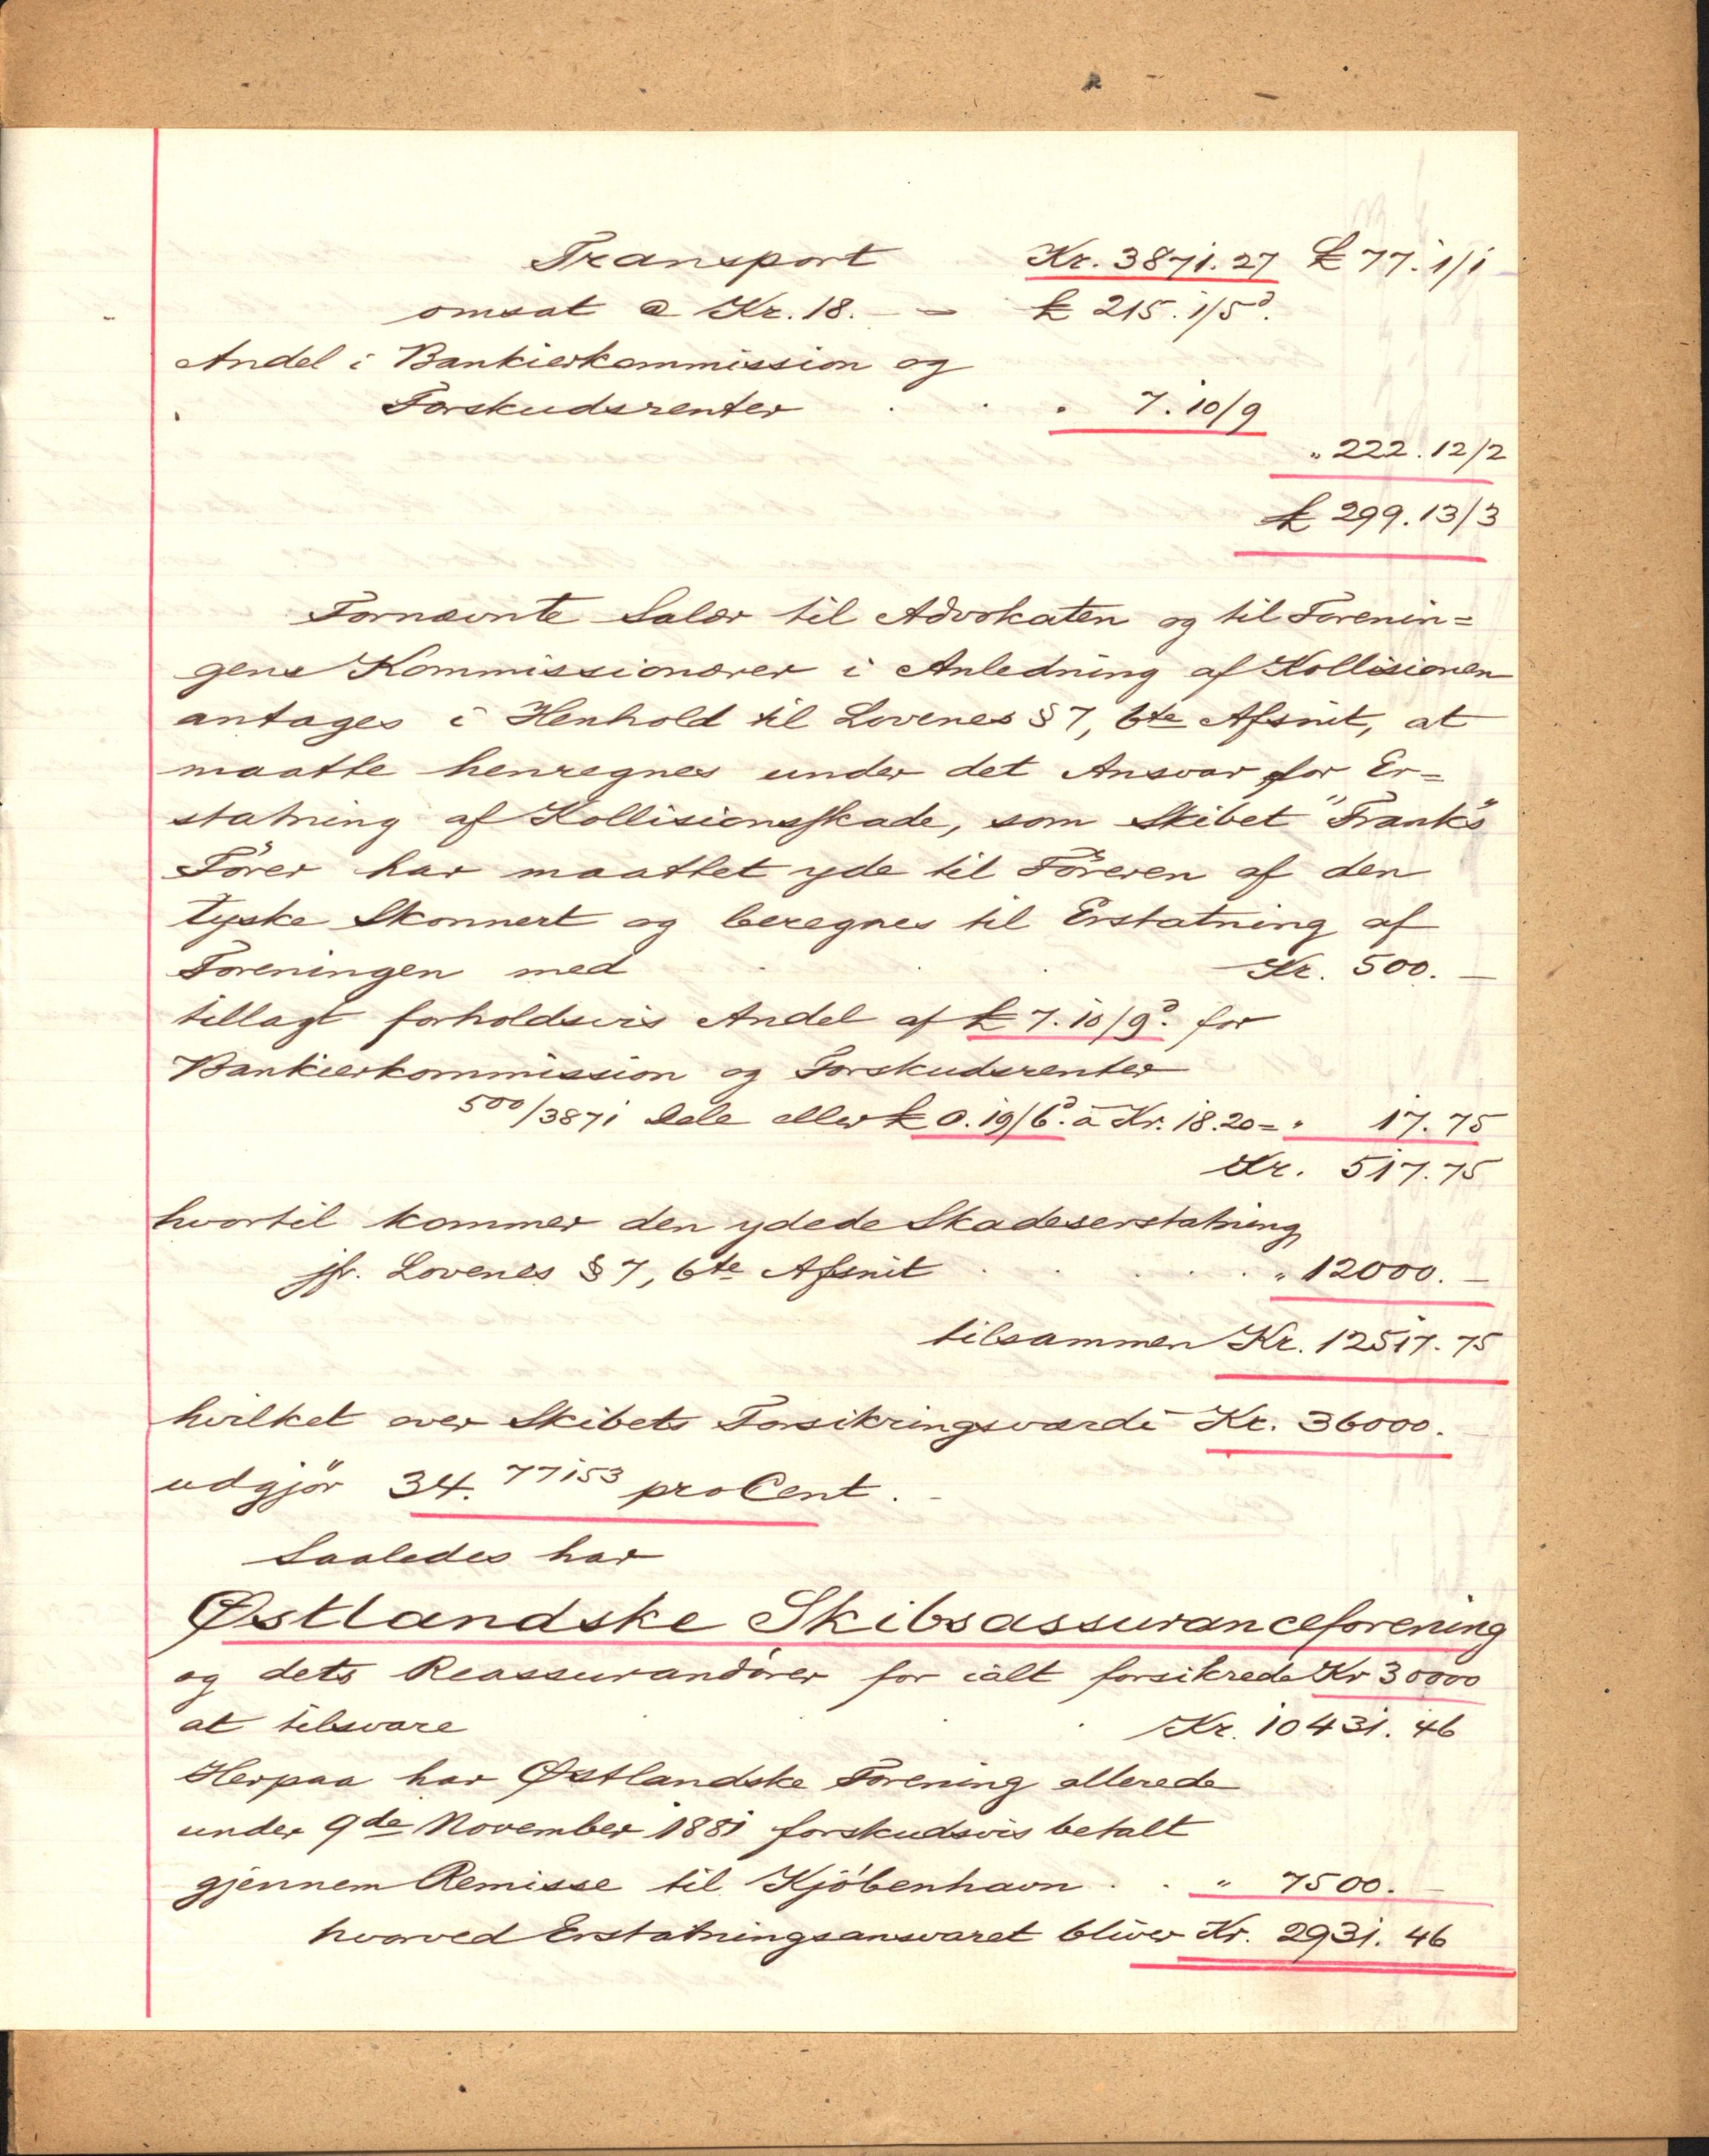 Transport Kr. 3871.27 £ 77.1/1
omsat a Kr. 18. — = £ 215.1/5d.
Andel i Bankierkommission og
Forskudsrenter . . " 7.10/9
" 222.12/2
£ 299.13/3
Fornævnte Salær til Advokaten og til Forenin=
gens Kommissionærer i Anledning af Kollisionen
antages i Henhold til Lovenes § 7, 6te Afsnit, at
maatte henregnes under det Ansvar for Er=
statning af Kollisionsskade, som Skibet "Frank's"
Förer har maattet yde til Föreren af den
tyske Skonnert og beregnes til Erstatning af
Foreningen med . . Kr. 500. —
tillagt forholdsvis Andel af £ 7.10/9d. for
Bankierkommission og Forskudsrenter
500/3871 Dele eller £ 0.19/6d. à Kr. 18.20 = " 17.75
Kr. 517.75
hvortil kommer den ydede Skadeserstatning
jfr. Lovenes § 7, 6te Afsnit . . . . . " 12000. —
tilsammen Kr. 12517.75
hvilket over Skibets Forsikringsværdi Kr. 36000. —
udgjör 34.77153 pro Cent. —
Saaledes har
Østlandske Skibsassuranceforening
og dets Reassurandörer for ialt forsikrede Kr 30000
at tilsvare . . Kr. 10431.46
Herpaa har Østlandske Forening allerede
under 9de November 1881 forskudsvis betalt
gjennem Remisse til Kjöbenhavn . . " 7500. —
hvorved Erstatningsansvaret bliver Kr. 2931.46